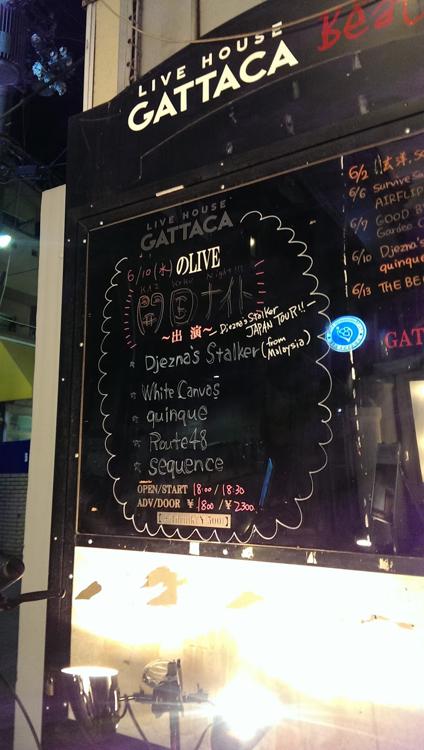 LIVE HOUSE
GATTACA
LIVE HOUSE
GATTACA
6/10 (水) のLIVE
ナイト
~出演~
Djezna's Stalker
JAPAN TOUR!!
☆ Djezna's Stalker (from Malaysia)
☆ White Canvas
☆ quinque
☆ Route48
☆ sequence
OPEN/START 18:00 / 18:30
ADV/DOOR ¥ 1800 / ¥ 2300
6/2 玄洋
6/6 Survive
AIRFLIP
6/9 GOOD B
Garden
6/10 Djezna's
quinque
6/13 THE BE
GAT